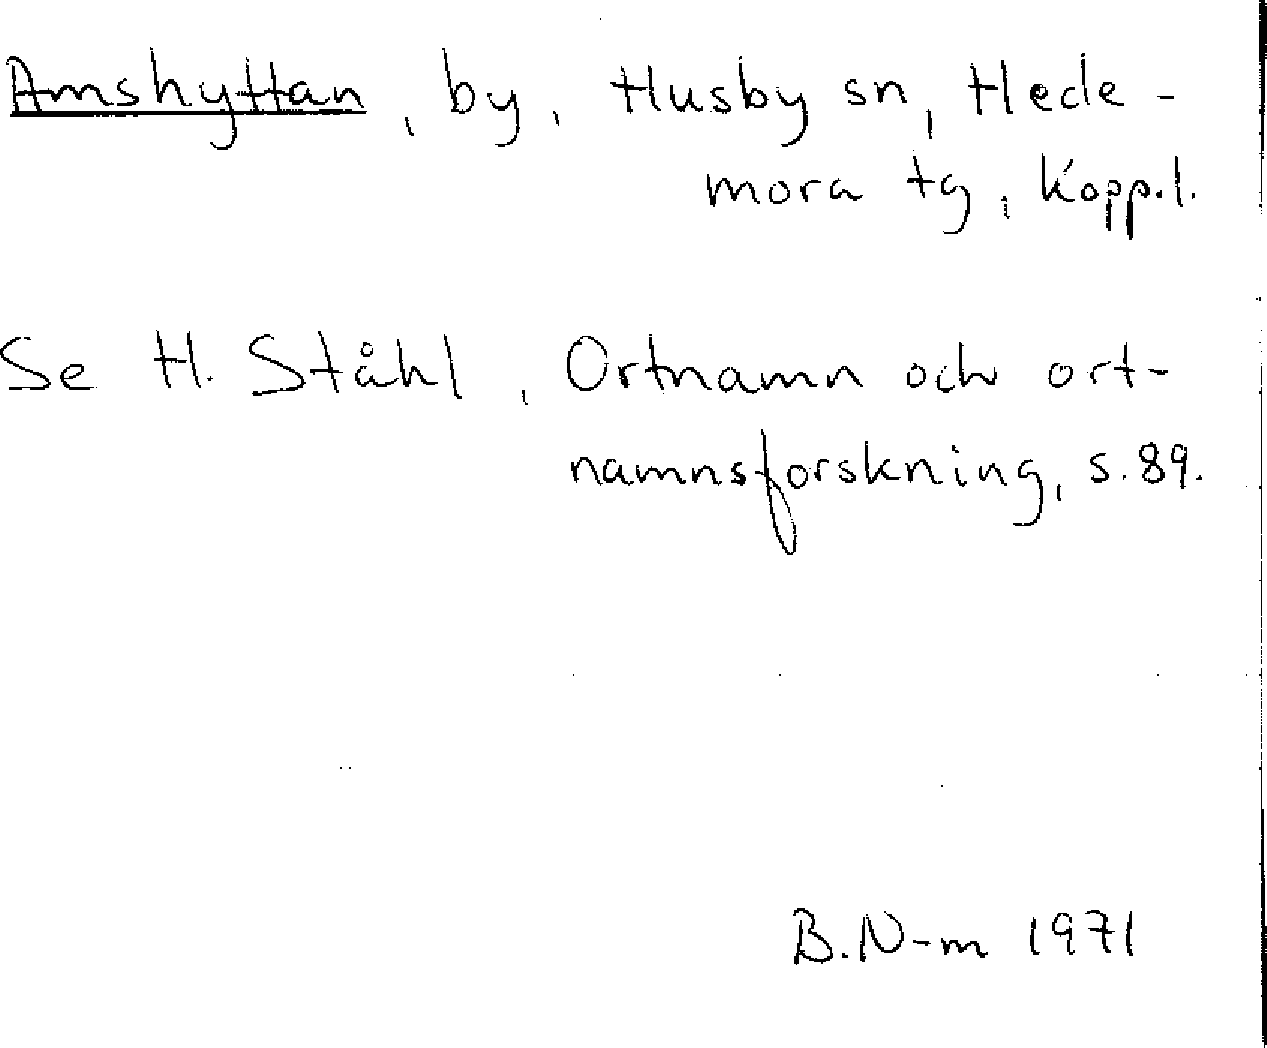 Amshyttan, by, Husby sn, Hede-
mora tg, Kopp.l.
Se H. Ståhl, Ortnamn och ort-
namnsforskning, s. 89.
B.N-m 1971